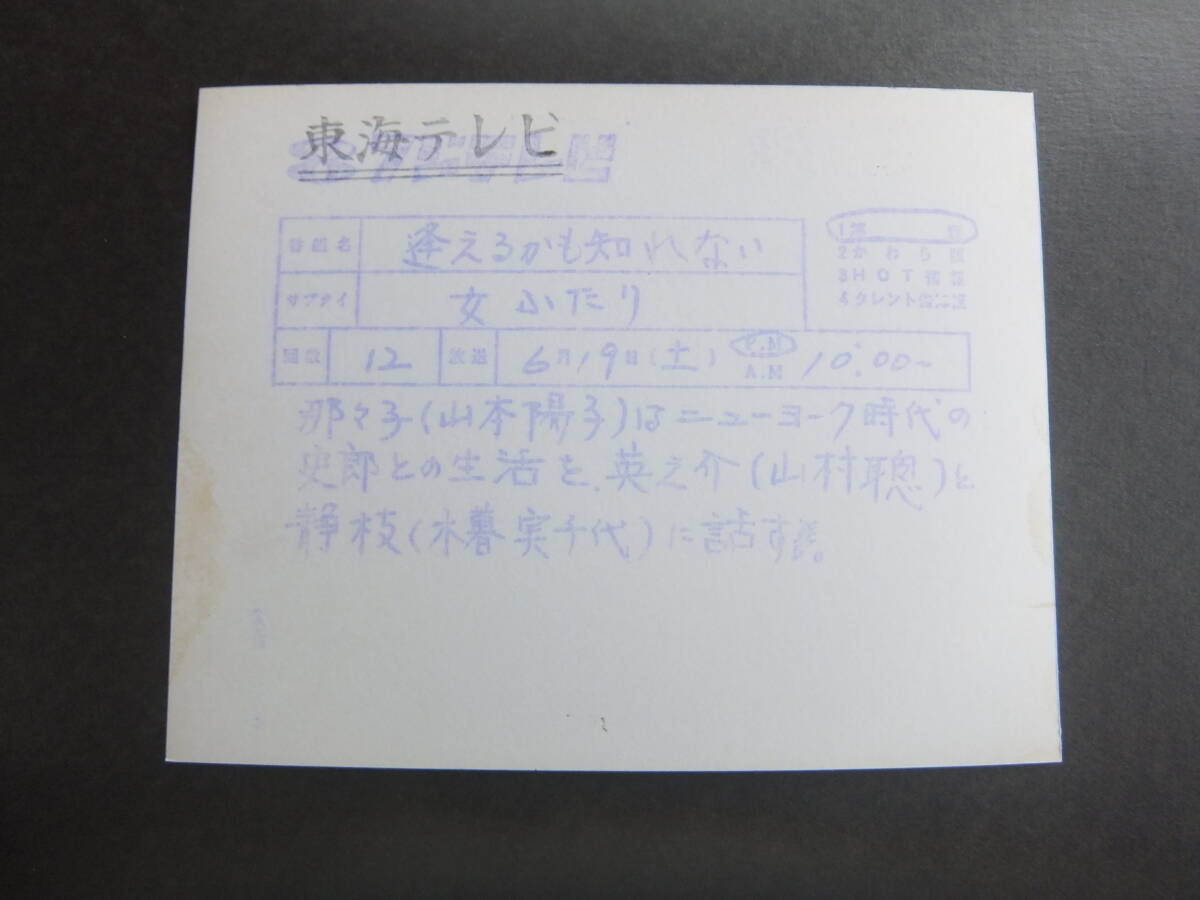 東海テレビ
番組名 逢えるかも知れない
サブタイ 女ふたり
2かわら版
3HOT情報
4タレント
回数 12 放送 6月19日(土) P.M A.M 10:00~
那々子(山本陽子)はニューヨーク時代の
史郎との生活を、英之介(山村聰)と
静枝(木暮実千代)に話す。